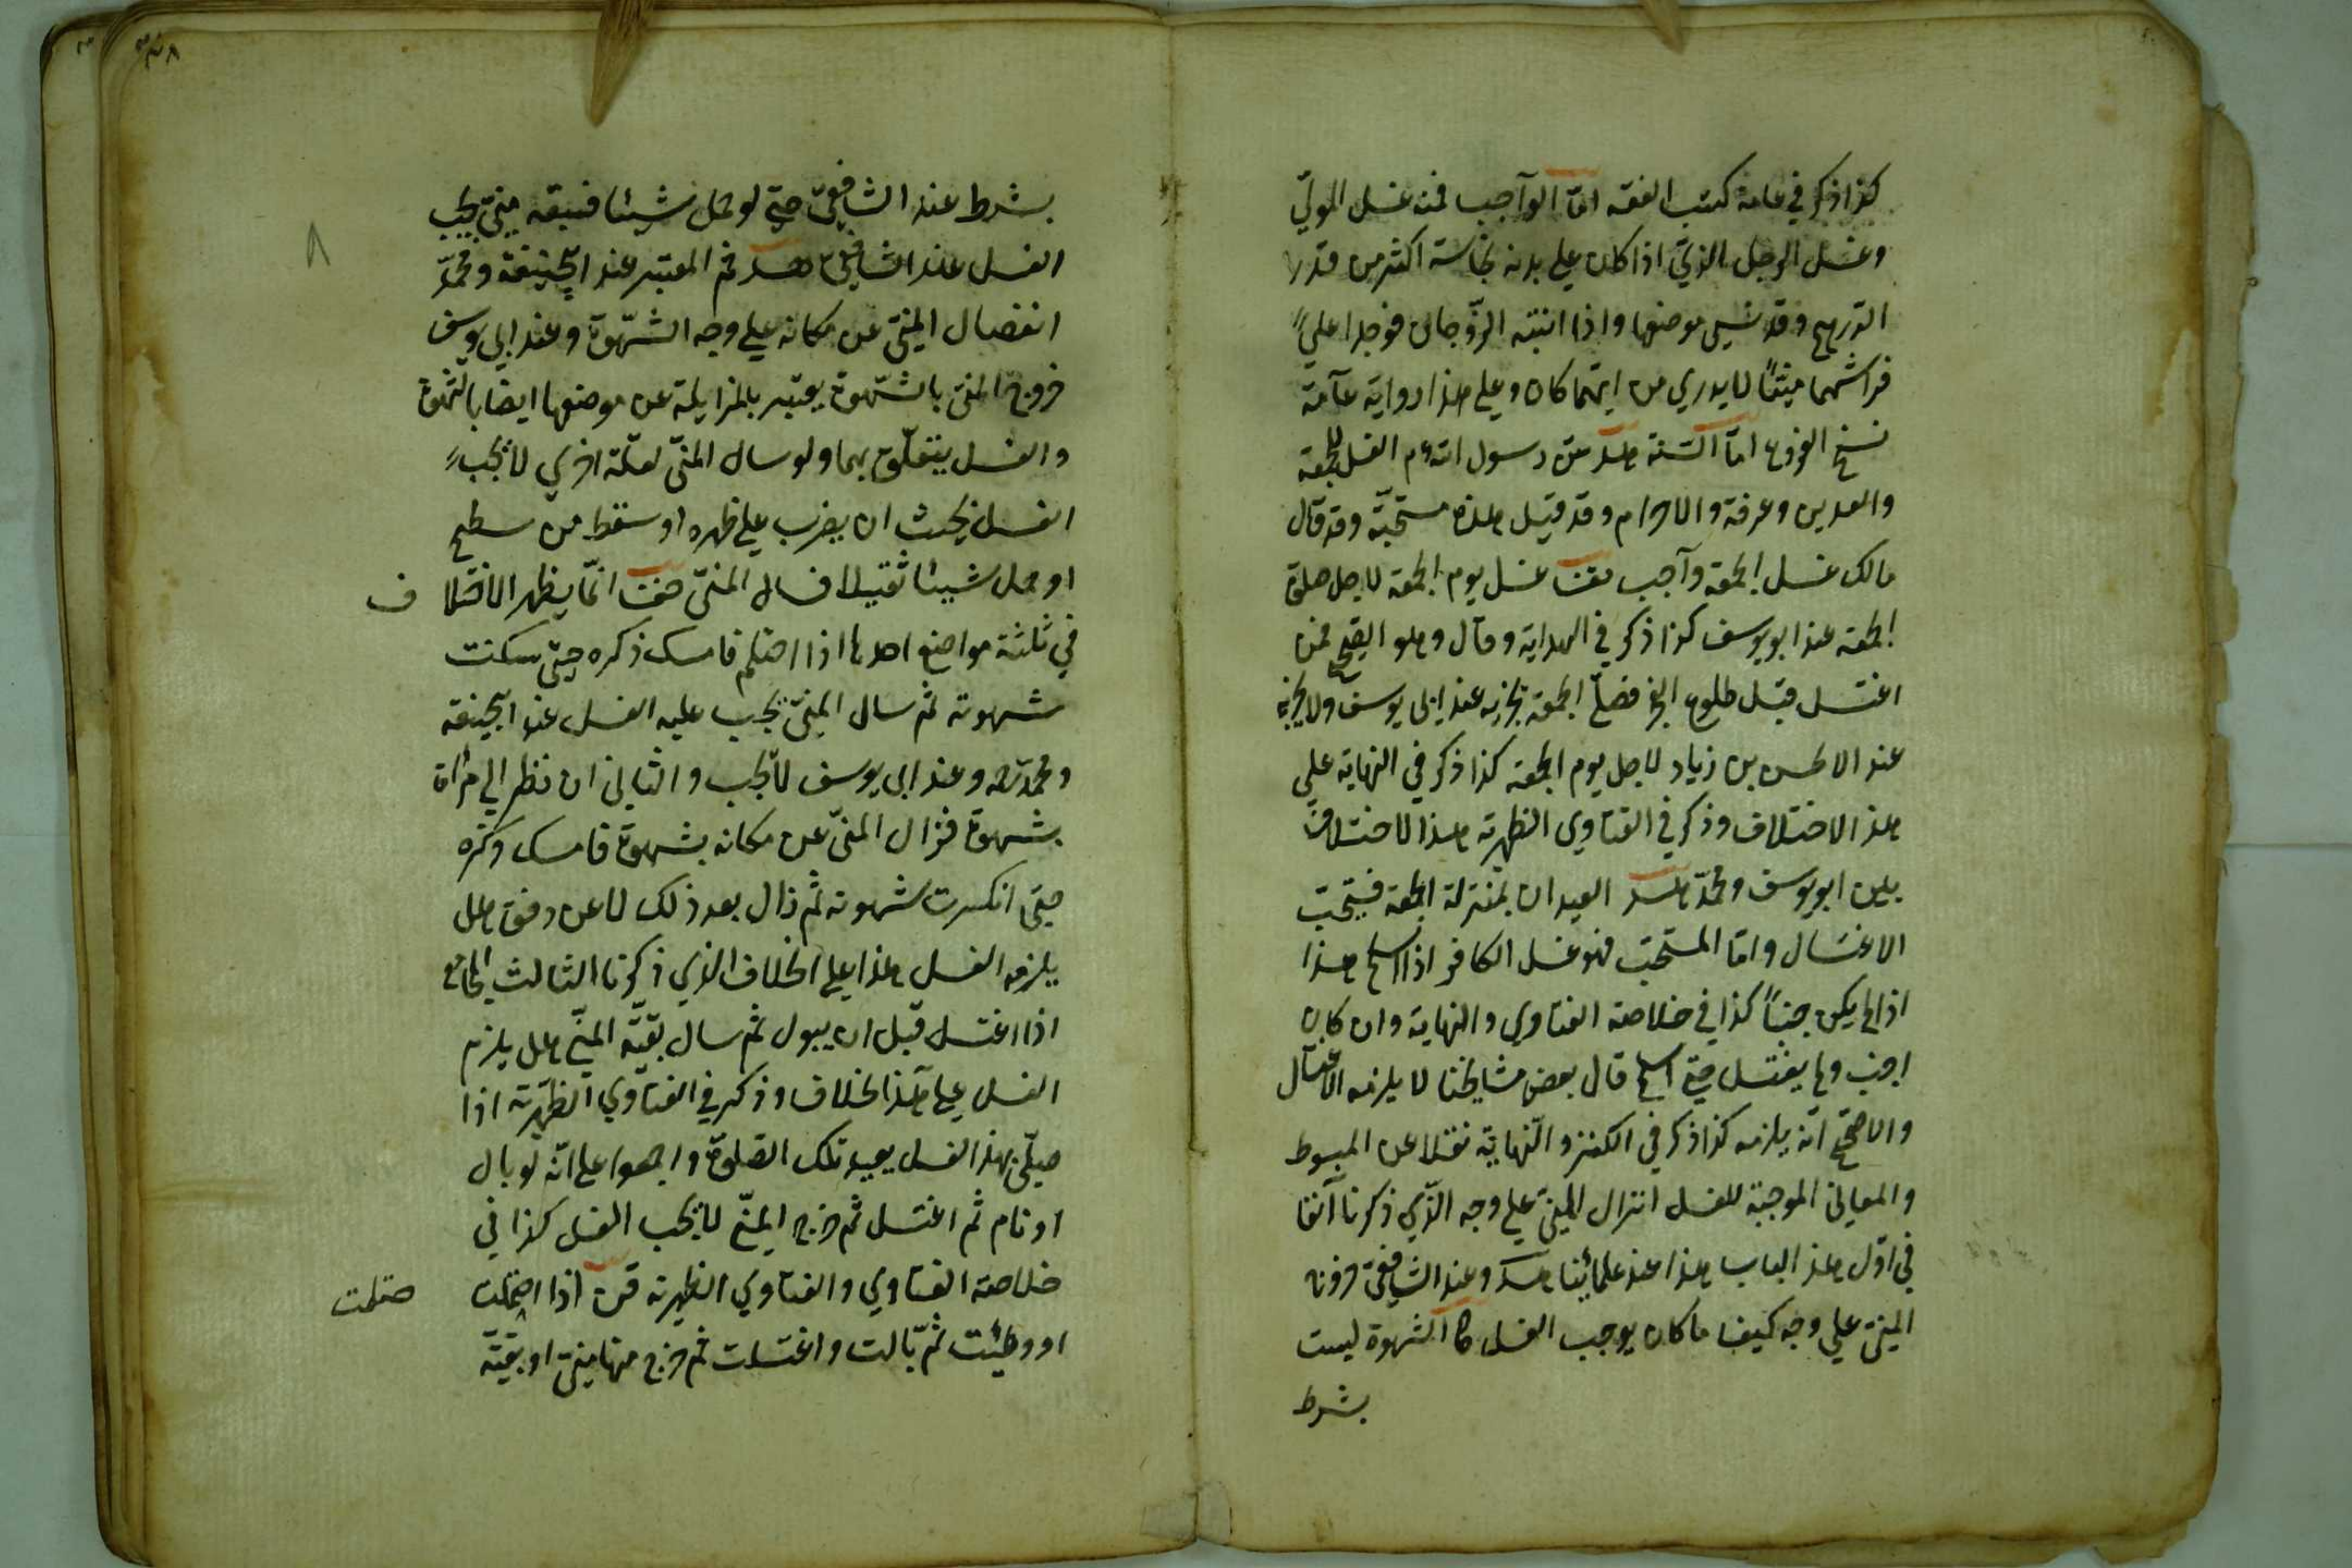 كذا ذكر في عامة كتب الفقه امّا الواجب فمنه غسل الموتي
وغسل الرجل الذي اذا كان علي بدنه نجاسة اكثر من قدر
الدرهم وقد نسي موضعها واذا انتبه الزوجان فوجدا علي
فراشهما منيّاً لا يدري من ايّهما كان وعلي هذا رواية عامّة
نسخ الفروع امّا السنّة رسول الله الغسل للجمعة
والعيدين وعرفة والاحرام وقد قيل هذه مستحبّة وقد قال
مالك غسل الجمعة واجب غسل يوم الجمعة لاجل صلوة
الجمعة عند ابو يوسف كذا ذكر في الهداية وقال وهو الصحيح فمن
اغتسل قبل طلوع الفجر فصلّي الجمعة يجزيه عند ابي يوسف ولا يجزيه
عند الحسن بن زياد لاجل يوم الجمعة كذا ذكر في النهاية علي
هذا الاختلاف وذكر في الفتاوي الظهيرية هذا الاختلاف
بين ابو يوسف ومحمد العيدان بمنزلة الجمعة فيستحبّ
الاغتسال وامّا المستحبّ فهو غسل الكافر اذا اسلم هذا
اذا لم يكن جنباً كذا في خلاصة الفتاوي والنهاية وان كان
اجنب ولم يغتسل حتي اسلم قال بعض مشايخنا لا يلزمه الاغتسال
والاصحّ انّه يلزمه كذا ذكر في الكنز والنهاية نقلا عن المبسوط
والمعاني الموجبة للغسل انزال المني علي وجه الذي ذكرنا آنفا
في اوّل هذا الباب هذا عند علمائنا وعند الشافعي خروج
المنيّ علي وجه كيف ما كان يوجب الغسل الشهوة ليست
بشرط
بشرط عند الشافعيّ حتي لو حمل شيئا فسبقه منيّ يجب
الغسل عند الشافعي ثم المعتبر عند ابي حنيفة ومحمّد
انفصال المنيّ عن مكانه علي وجه الشهوة وعند ابي يوسف
خروج المنيّ بالشهوة يعتبر بالمزايلة عن موضعها ايضا بالشهوة
والغسل يتعلّق بهما ولو سال المنيّ لعلّة اخري لا يجب
الغسل بحيث ان يضرب علي ظهره او سقط من سطح
او حمل شيئا ثقيلا فسال المنيّ انّما يظهر الاختلا ف
في ثلثة مواضع احدها اذا احتلم فامسك ذكره حتي سكنت
شهوته ثم سال المنيّ يجب عليه الغسل عند ابي حنيفة
ومحمد وعند ابي يوسف لا يجب والثاني ان نظر الي مرأة
بشهوة فزال المنيّ عن مكانه بشهوة فامسك ذكره
حتي انكسرت شهوته ثم زال بعد ذلك لا عن دفق هل
يلزمه الغسل هذا علي الخلاف الذي ذكرنا الثالث المجامع
اذا اغتسل قبل ان يبول ثم سال بقيّة المنيّ هل يلزم
الغسل علي هذا الخلاف وذكر في الفتاوي الظهيرية اذا
صلّي بهذا الغسل يعيد تلك الصلوة واجمعوا علي انّه لو بال
او نام ثم اغتسل ثم خرج المنيّ لا يجب الغسل كذا في
خلاصة الفتاوي والفتاوي الظهيرية اذا احتلمت
او وطئت ثم بالت واغتسلت ثم خرج منها منيّ او بقيّة